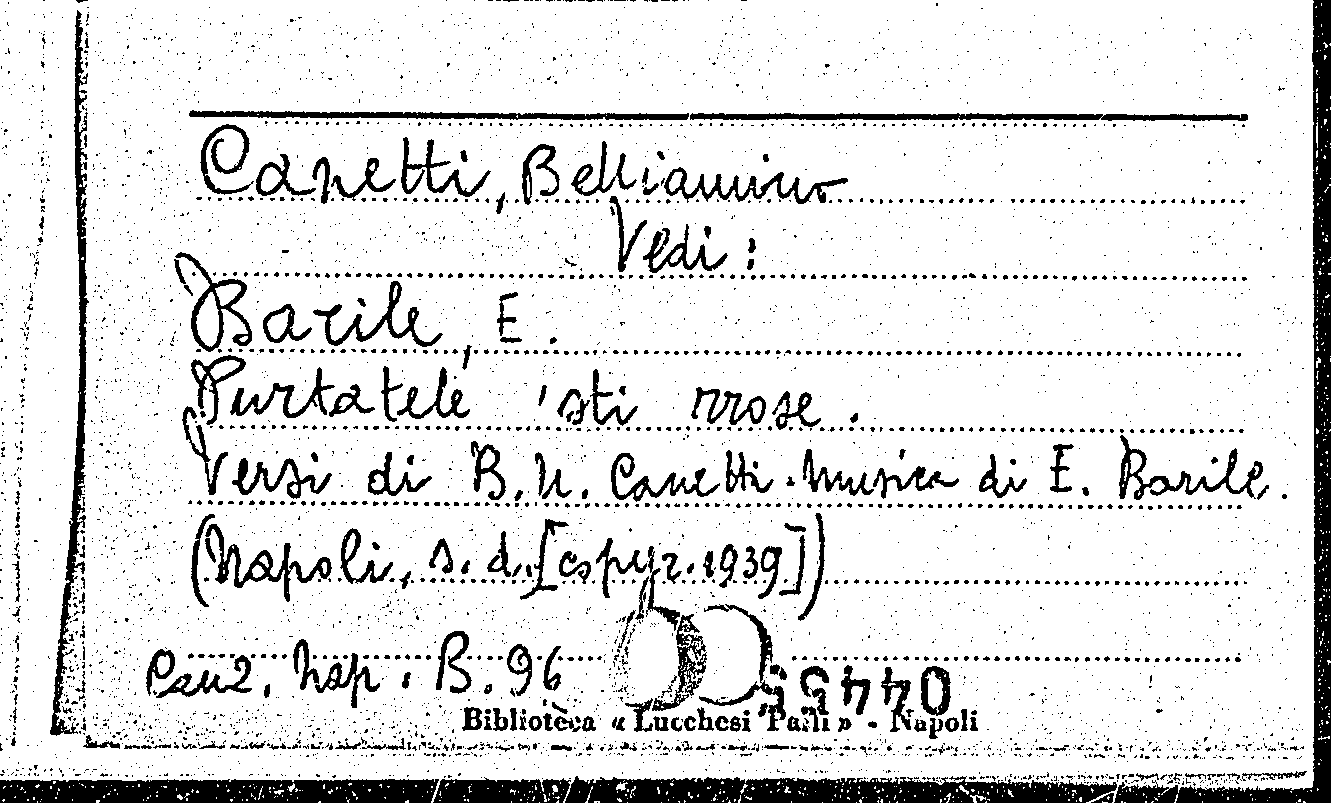 Canetti, Belliamino
Vedi:
Barile, E.
Purtatele 'sti rrose.
Versi di B. N. Canetti. Musica di E. Barile.
(Napoli, s. d. [copyr. 1939])
Canz. Nap. B. 96
04455
Biblioteca « Lucchesi Palli » - Napoli